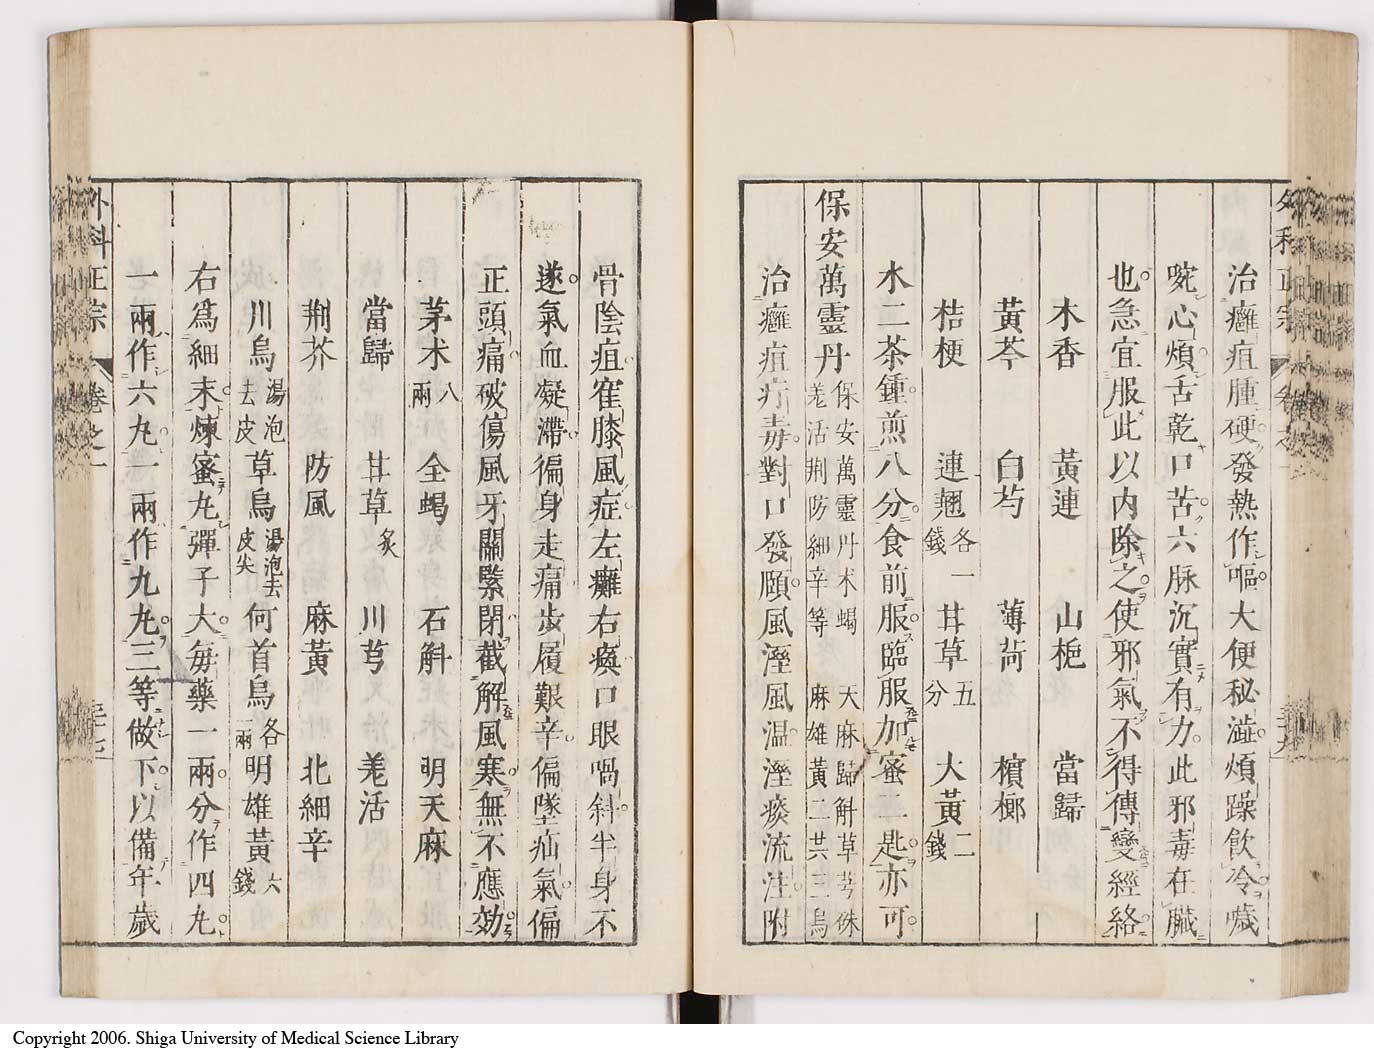 治癰疽腫硬發熱作嘔大便秘澁煩躁飲冷噦
啘心煩舌乾口苦六脉沉實有力此邪毒在臟
也急宜服此以内除之使邪氣不得傳變經絡
木香 黃連 山梔 當歸
黃芩 白芍 薄荷 檳榔
桔梗 連翹各一錢 甘草五分 大黃二錢
水二茶鍾煎八分食前服臨服加蜜二匙亦可
保安萬靈丹 保安萬靈丹朮蝎 天麻歸斛草芎侏
羌活荆防細辛等 麻雄黃二共三烏
治癰疽疔毒對口發頤風溼風温溼痰流注附
骨陰疽寉膝風症左癱右瘓口眼喎斜半身不
遂氣血凝滯徧身走痛步履艱辛偏墜疝氣偏
正頭痛破傷風牙關緊閉截解風寒無不應効
茅朮八兩 全蝎 石斛 明天麻
當歸 甘草炙 川芎 羌活
荆芥 防風 麻黃 北細辛
川烏湯泡去皮 草烏湯泡去皮尖 何首烏各一兩 明雄黃六錢
右爲細末煉蜜丸彈子大毎藥一兩分作四丸
一兩作六丸一兩作九丸三等做下以備年歲
外科正宗 卷之一
Copyright 2006. Shiga University of Medical Science Library